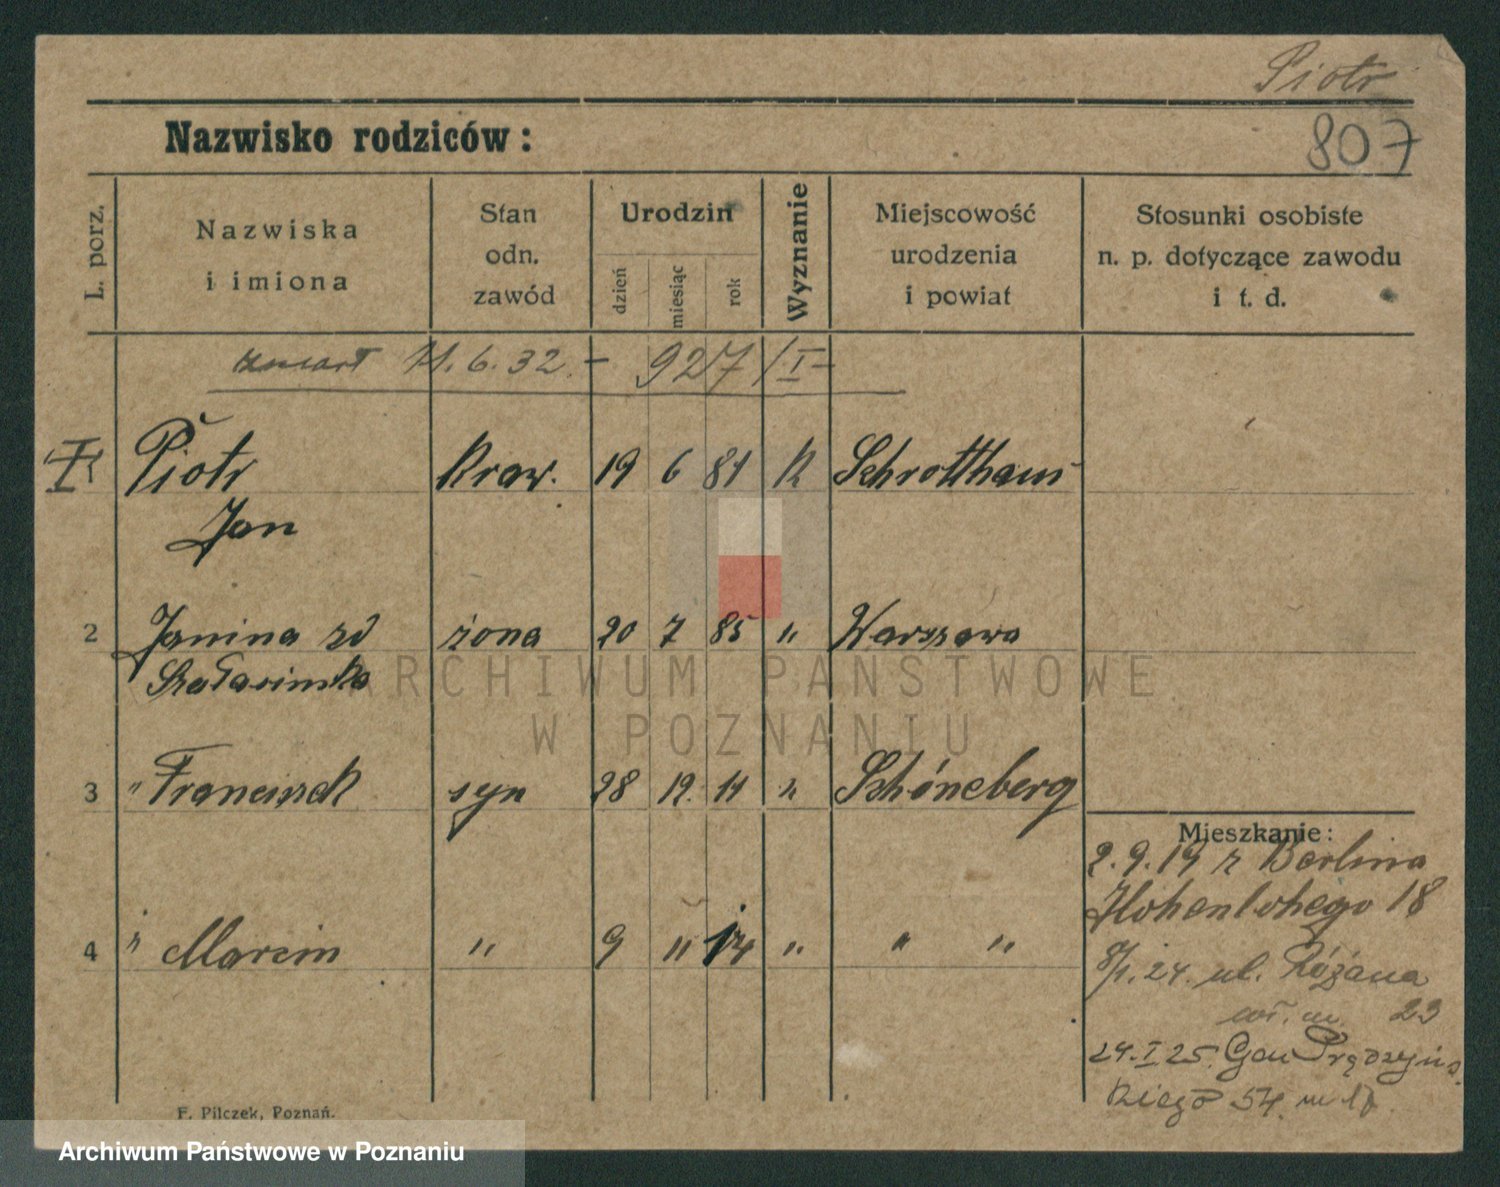 Piotr
807
Nazwisko rodziców:
L. porz.
Nazwiska
i imiona
Stan
odn.
zawód
Urodzin
dzień
miesiąc
rok
Wyznanie
Miejscowość
urodzenia
i powiat
Stosunki osobiste
n. p. dotyczące zawodu
i t. d.
zmarł 11.6.32. - 927/I-
Piotr kraw. 19 6 81 K Schrotthaus
Jan
2 Janina zd żona 20 7 85 " Warszawa
3 " Franciszek syn 28 12. 11 " Schöneberg
Mieszkanie:
2.9.19 z Berlina
Hohenlohego 18
4 " Marcin " 9 " 14 " " "
8/1.24. ul. Różana
23
24.I.25. Gen Prądzyńs.
kiego 54. m 17
F. Pilczek, Poznań.
ARCHIWUM PAŃSTWOWE
W POZNANIU
Archiwum Państwowe w Poznaniu